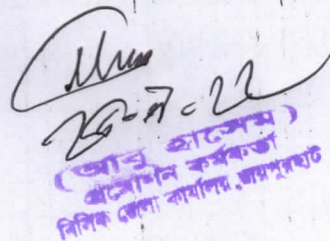 ২৫-৫-২২
(আবু হাসেম)
প্রমোশন কর্মকর্তা
বিসিক জেলা কার্যালয়, জয়পুরহাট